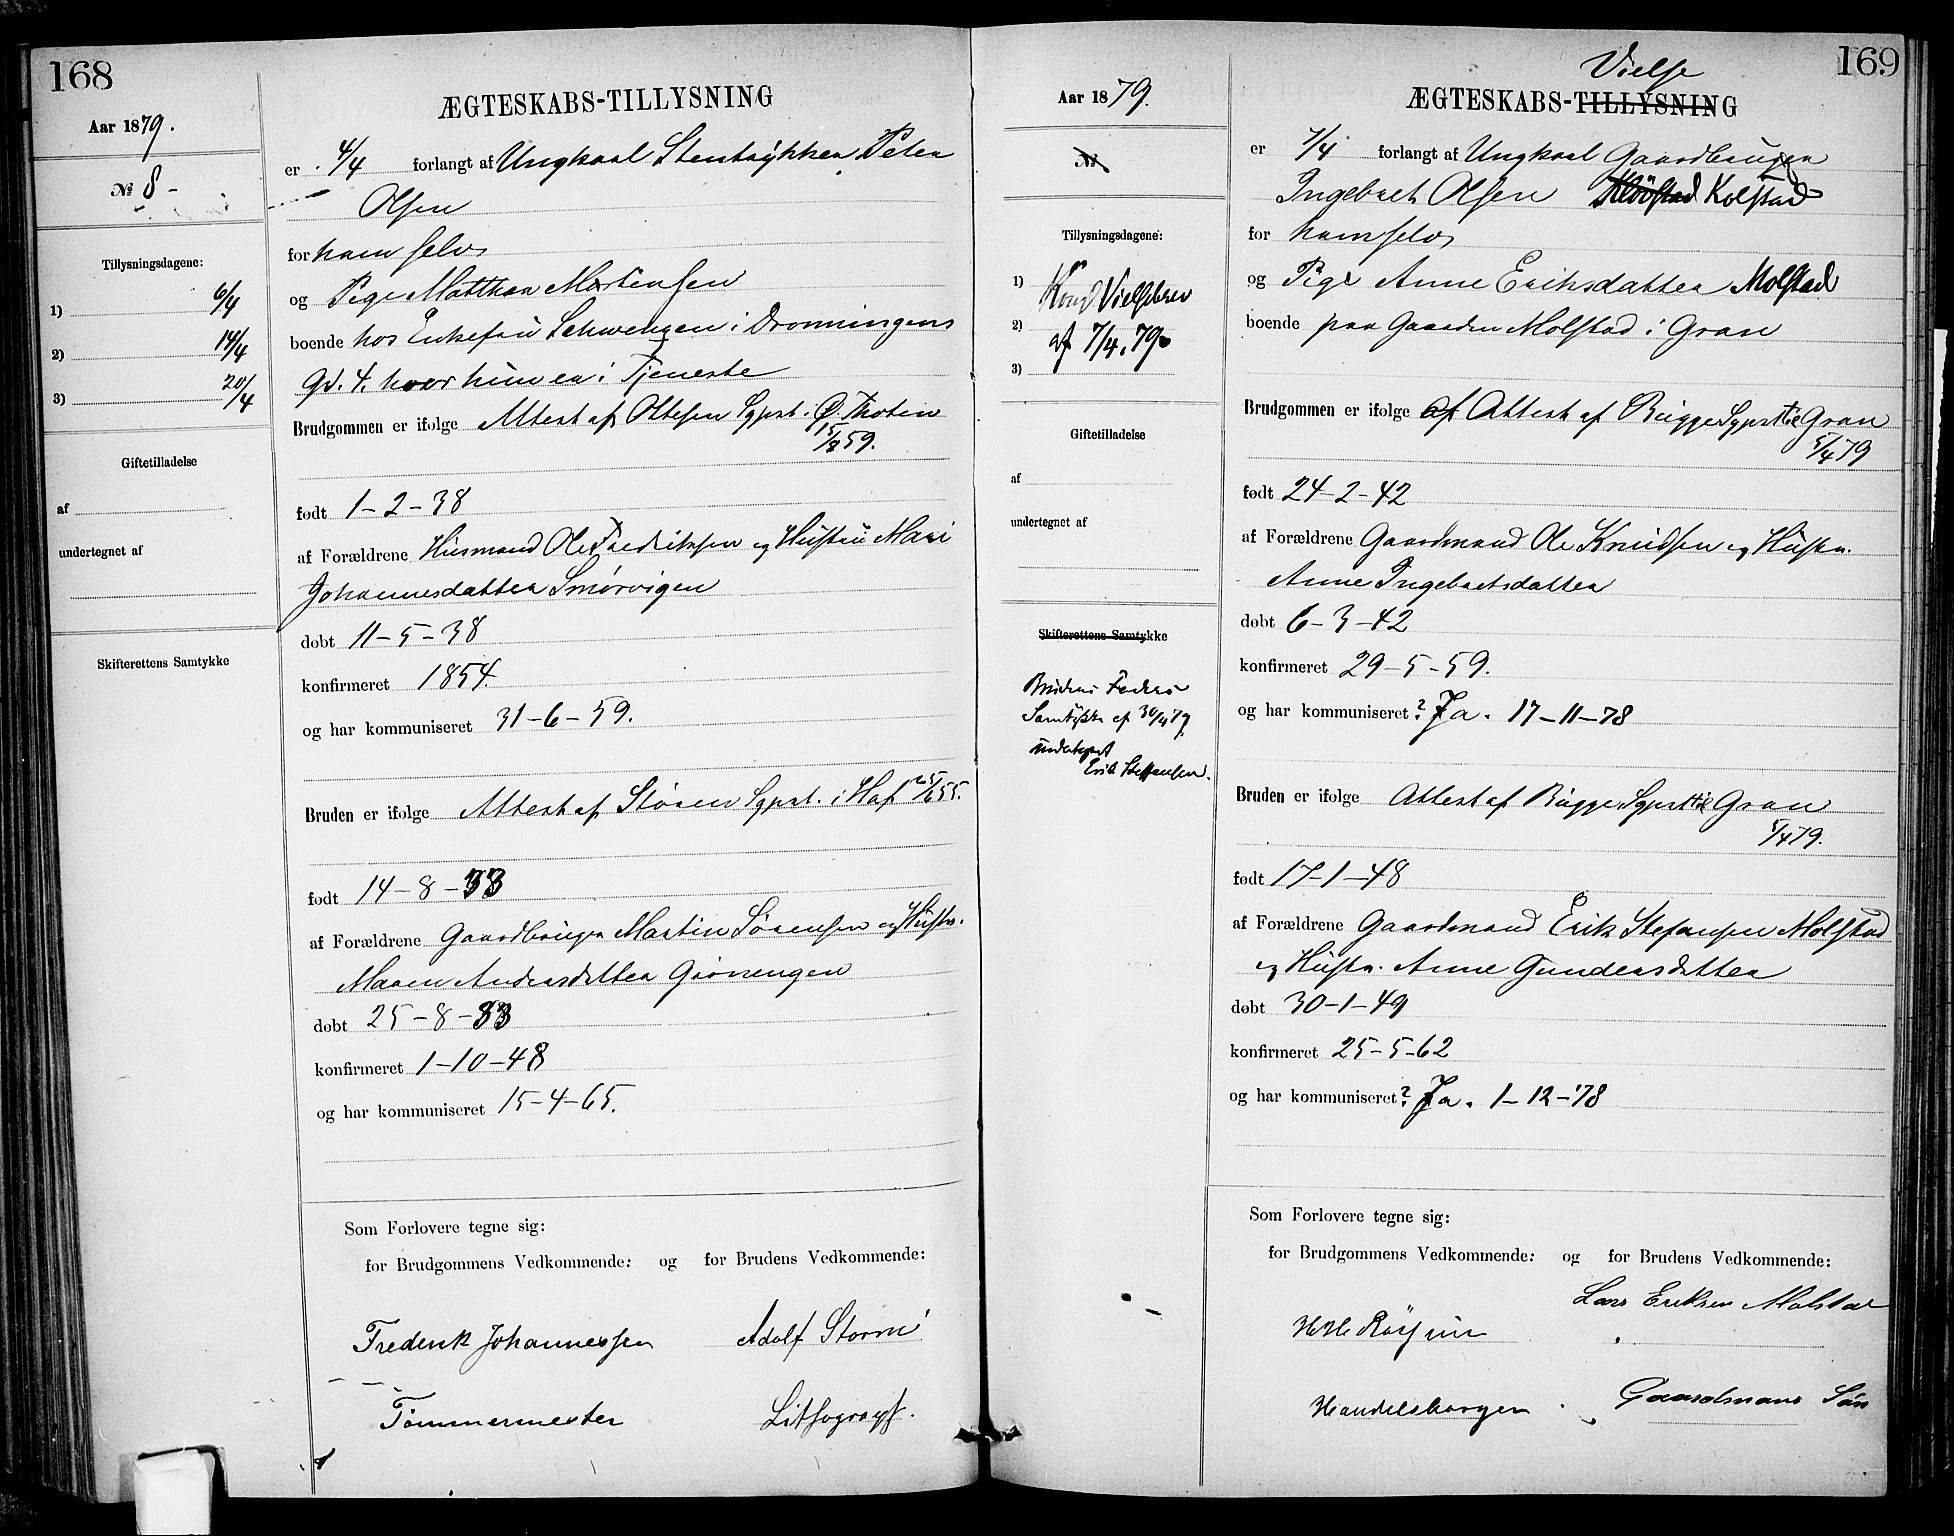 168
Aar 1879.
№ 8 -
Tillysningsdagene:
1) 6/4
2) 14/4
3) 20/4
Giftetilladelse
af
undertegnet af
Skifterettens Samtykke
ÆGTESKABS-TILLYSNING
er 4/4 forlangt af Ungkarl Stentrykker Peter
Olsen
for ham selv
og Pige Matthea Martinsen
boende hos Enkefru Schwenzen i Dronningens
Gd. 4. hvor hun er i Tjeneste
Brudgommen er ifølge Attest af Ottesen Sgprst. i Ø. Thoten
59.
født 1-2-38
af Forældrene Husmand Ole Fredriksen og Hustru Mari
Johannesdatter Smørvigen
døbt 11-5-38
konfirmeret 1854.
og har kommuniseret 31-6-59.
Bruden er ifølge Attest af Støren Sgprst. i Hof 55.
født 14-8-33
af Forældrene Gaardbruger Martin Sørensen og Hustr.
Maren Andersdatter Grønengen
døbt 25-8-33
konfirmeret 1-10-48
og har kommuniseret 15-4-65.
Som Forlovere tegne sig:
for Brudgommens Vedkommende: og for Brudens Vedkommende:
Frederik Johannessen Adolf Storm
Tømmermester Lithograph.
169
Aar 1879.
№
Tillysningsdagene:
1) Kongl Vielsebrev
2) af 7/4.79.
3)
Giftetilladelse
af
undertegnet af
Skifterettens Samtykke
Brudens Faders
Samtykke af 30/ 79
undertegnet
Erik Steffensen.
Vielse
ÆGTESKABS-TILLYSNING
er 7/4 forlangt af Ungkarl Gaardbruger
Ingebret Olsen Kolstad
for ham selv
og Pige Anne Eriksdatter Molstad
boende paa Gaarden Molstad i Gran
Brudgommen er ifølge af Attest af Bugge Sgprst til Gran
5/4 79
født 24-2-42
af Forældrene Gaardmand Ole Knudsen og Hustr.
Anne Ingebretsdatter
døbt 6-3-42
konfirmeret 29-5-59.
og har kommuniseret? Ja. 17-11-78
Bruden er ifølge Attest af Bugge, Sgprst til Gran
5/4 79.
født 17-1-48
af Forældrene Gaardmand Erik Stefansen Molstad
og Hustr. Anne Gundersdatter
døbt 30-1-49
konfirmeret 25-5-62
og har kommuniseret? Ja. 1-12-78
Som Forlovere tegne sig:
for Brudgommens Vedkommende: og for Brudens Vedkommende:
Lars Eriksen Molstad
Handelsborger Gaardmans Søn